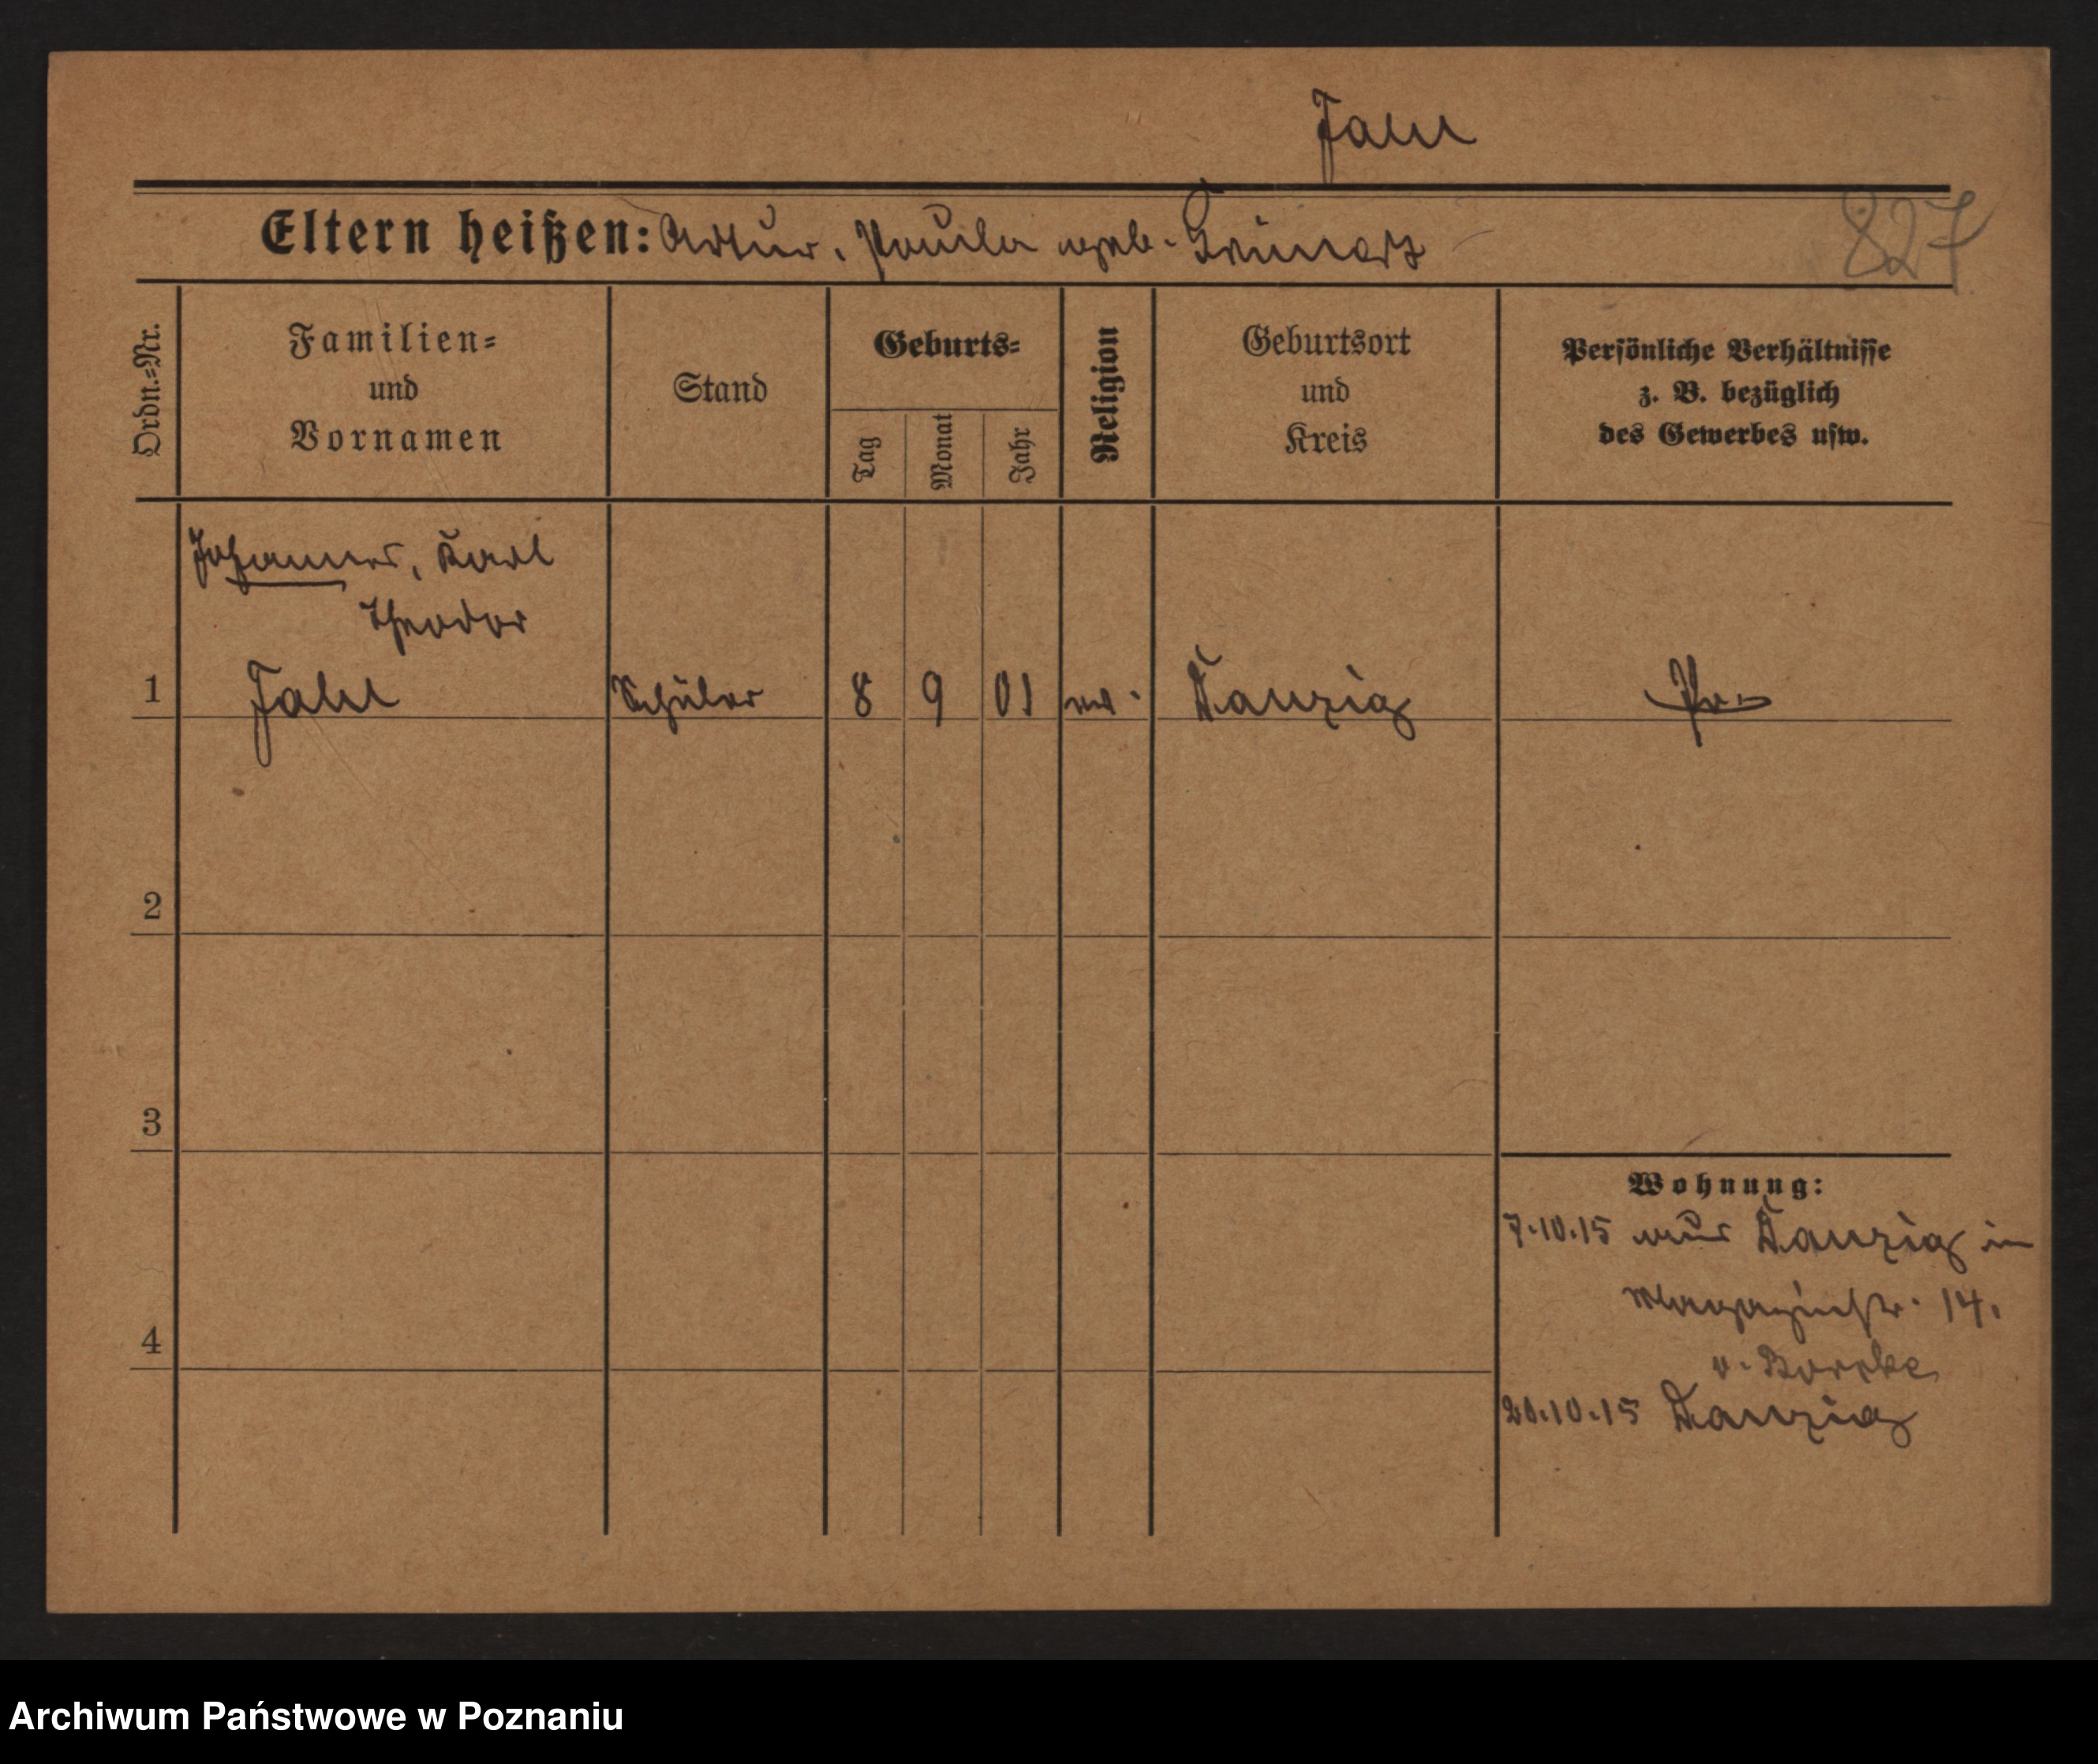 Jahn
Eltern heißen: Artur, Paula geb.
827
Ordn.-Nr.
Familien-
und
Vornamen
Stand
Geburts-
Tag
Monat
Jahr
Religion
Geburtsort
und
Kreis
Persönliche Verhältnisse
z. B. bezüglich
des Gewerbes usw.
Johannes, Karl
Theodor
1 Jahn Schüler 8 9 01 ev. Danzig Pr.
2
3
4
Wohnung:
7.10.15 aus Danzig in
Magazinstr. 14.
v. Borcke
20.10.15 Danzig
Archiwum Państwowe w Poznaniu